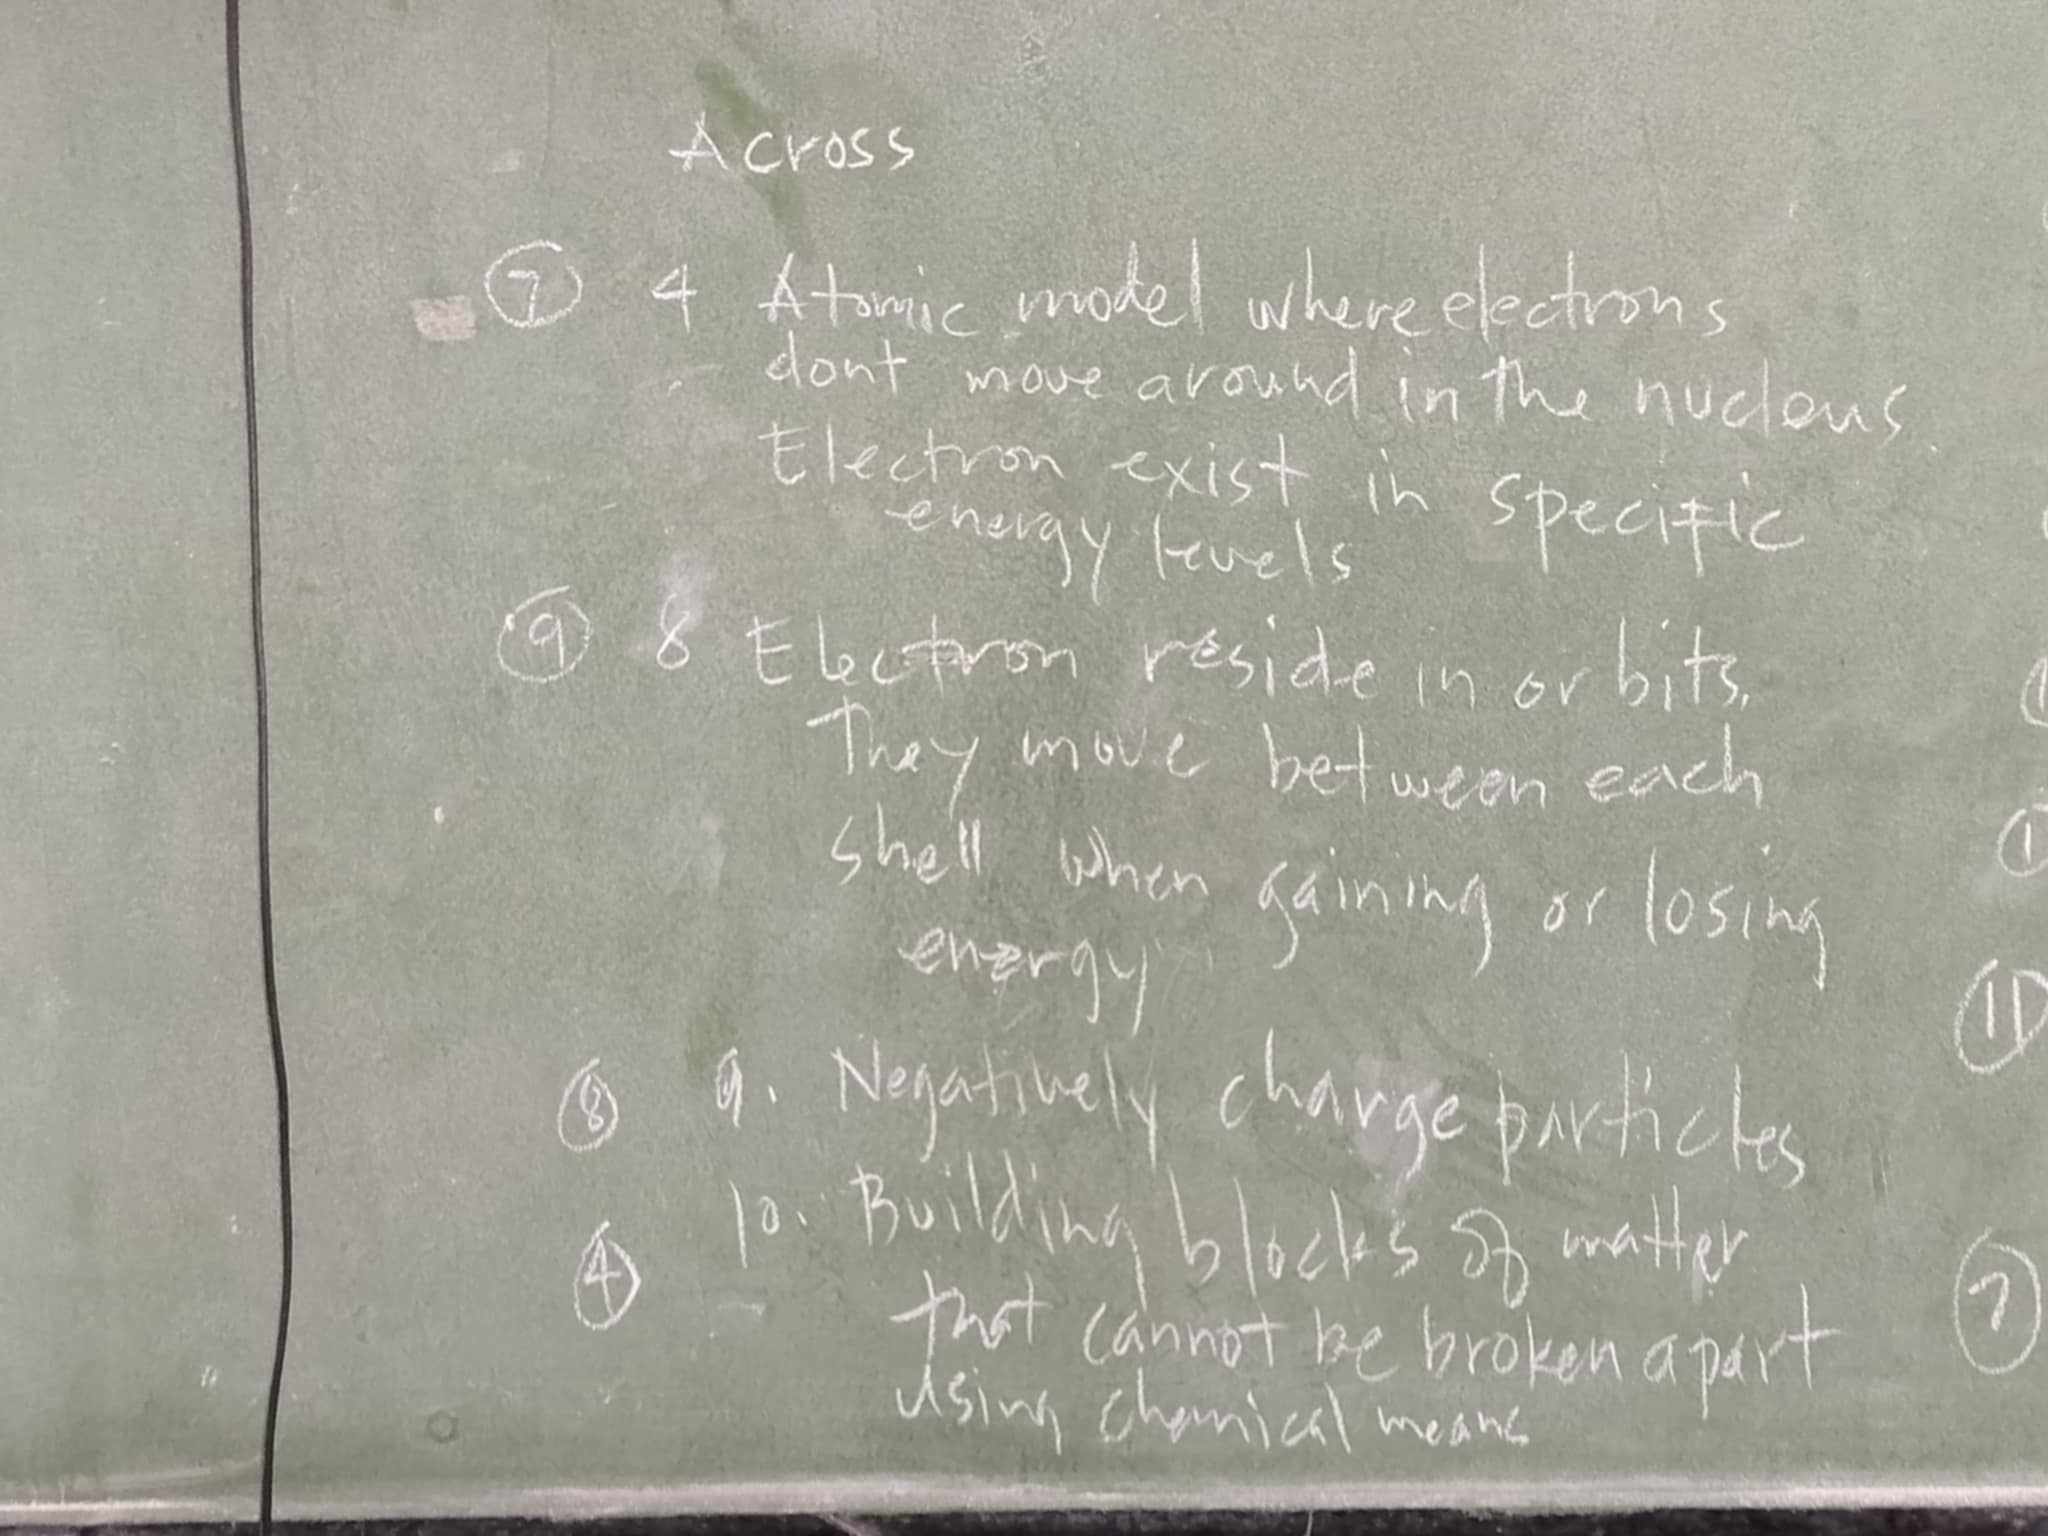 Across
⑦ 4 Atomic model where electrons
dont move around in the nucleus.
Electron exist in specific
energy levels
⑨ 8 Electron reside in orbits.
They move between each
shell when gaining or losing
energy
⑧ 9. Negatively charge particles
④ 10. Building blocks of matter
that cannot be broken apart
using chemical means
⑪
⑦